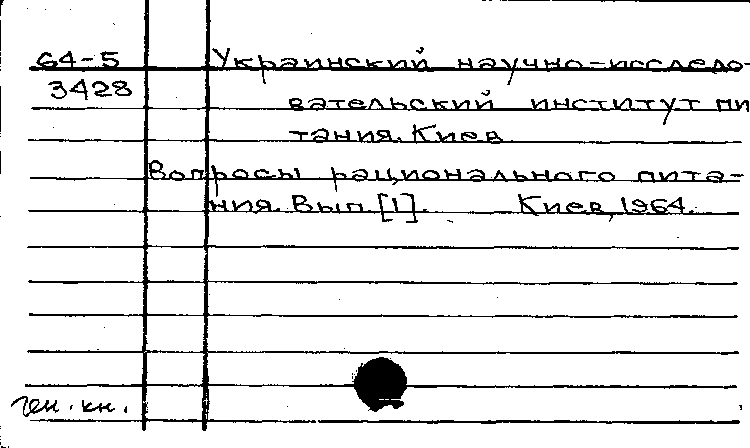 64-5 Украинский научно-исследо-
3428
вательский институт пи
тания. Киев
Вопросы рационального пита-
ния. Вып [1]. Киев, 1964.
ген. кн.